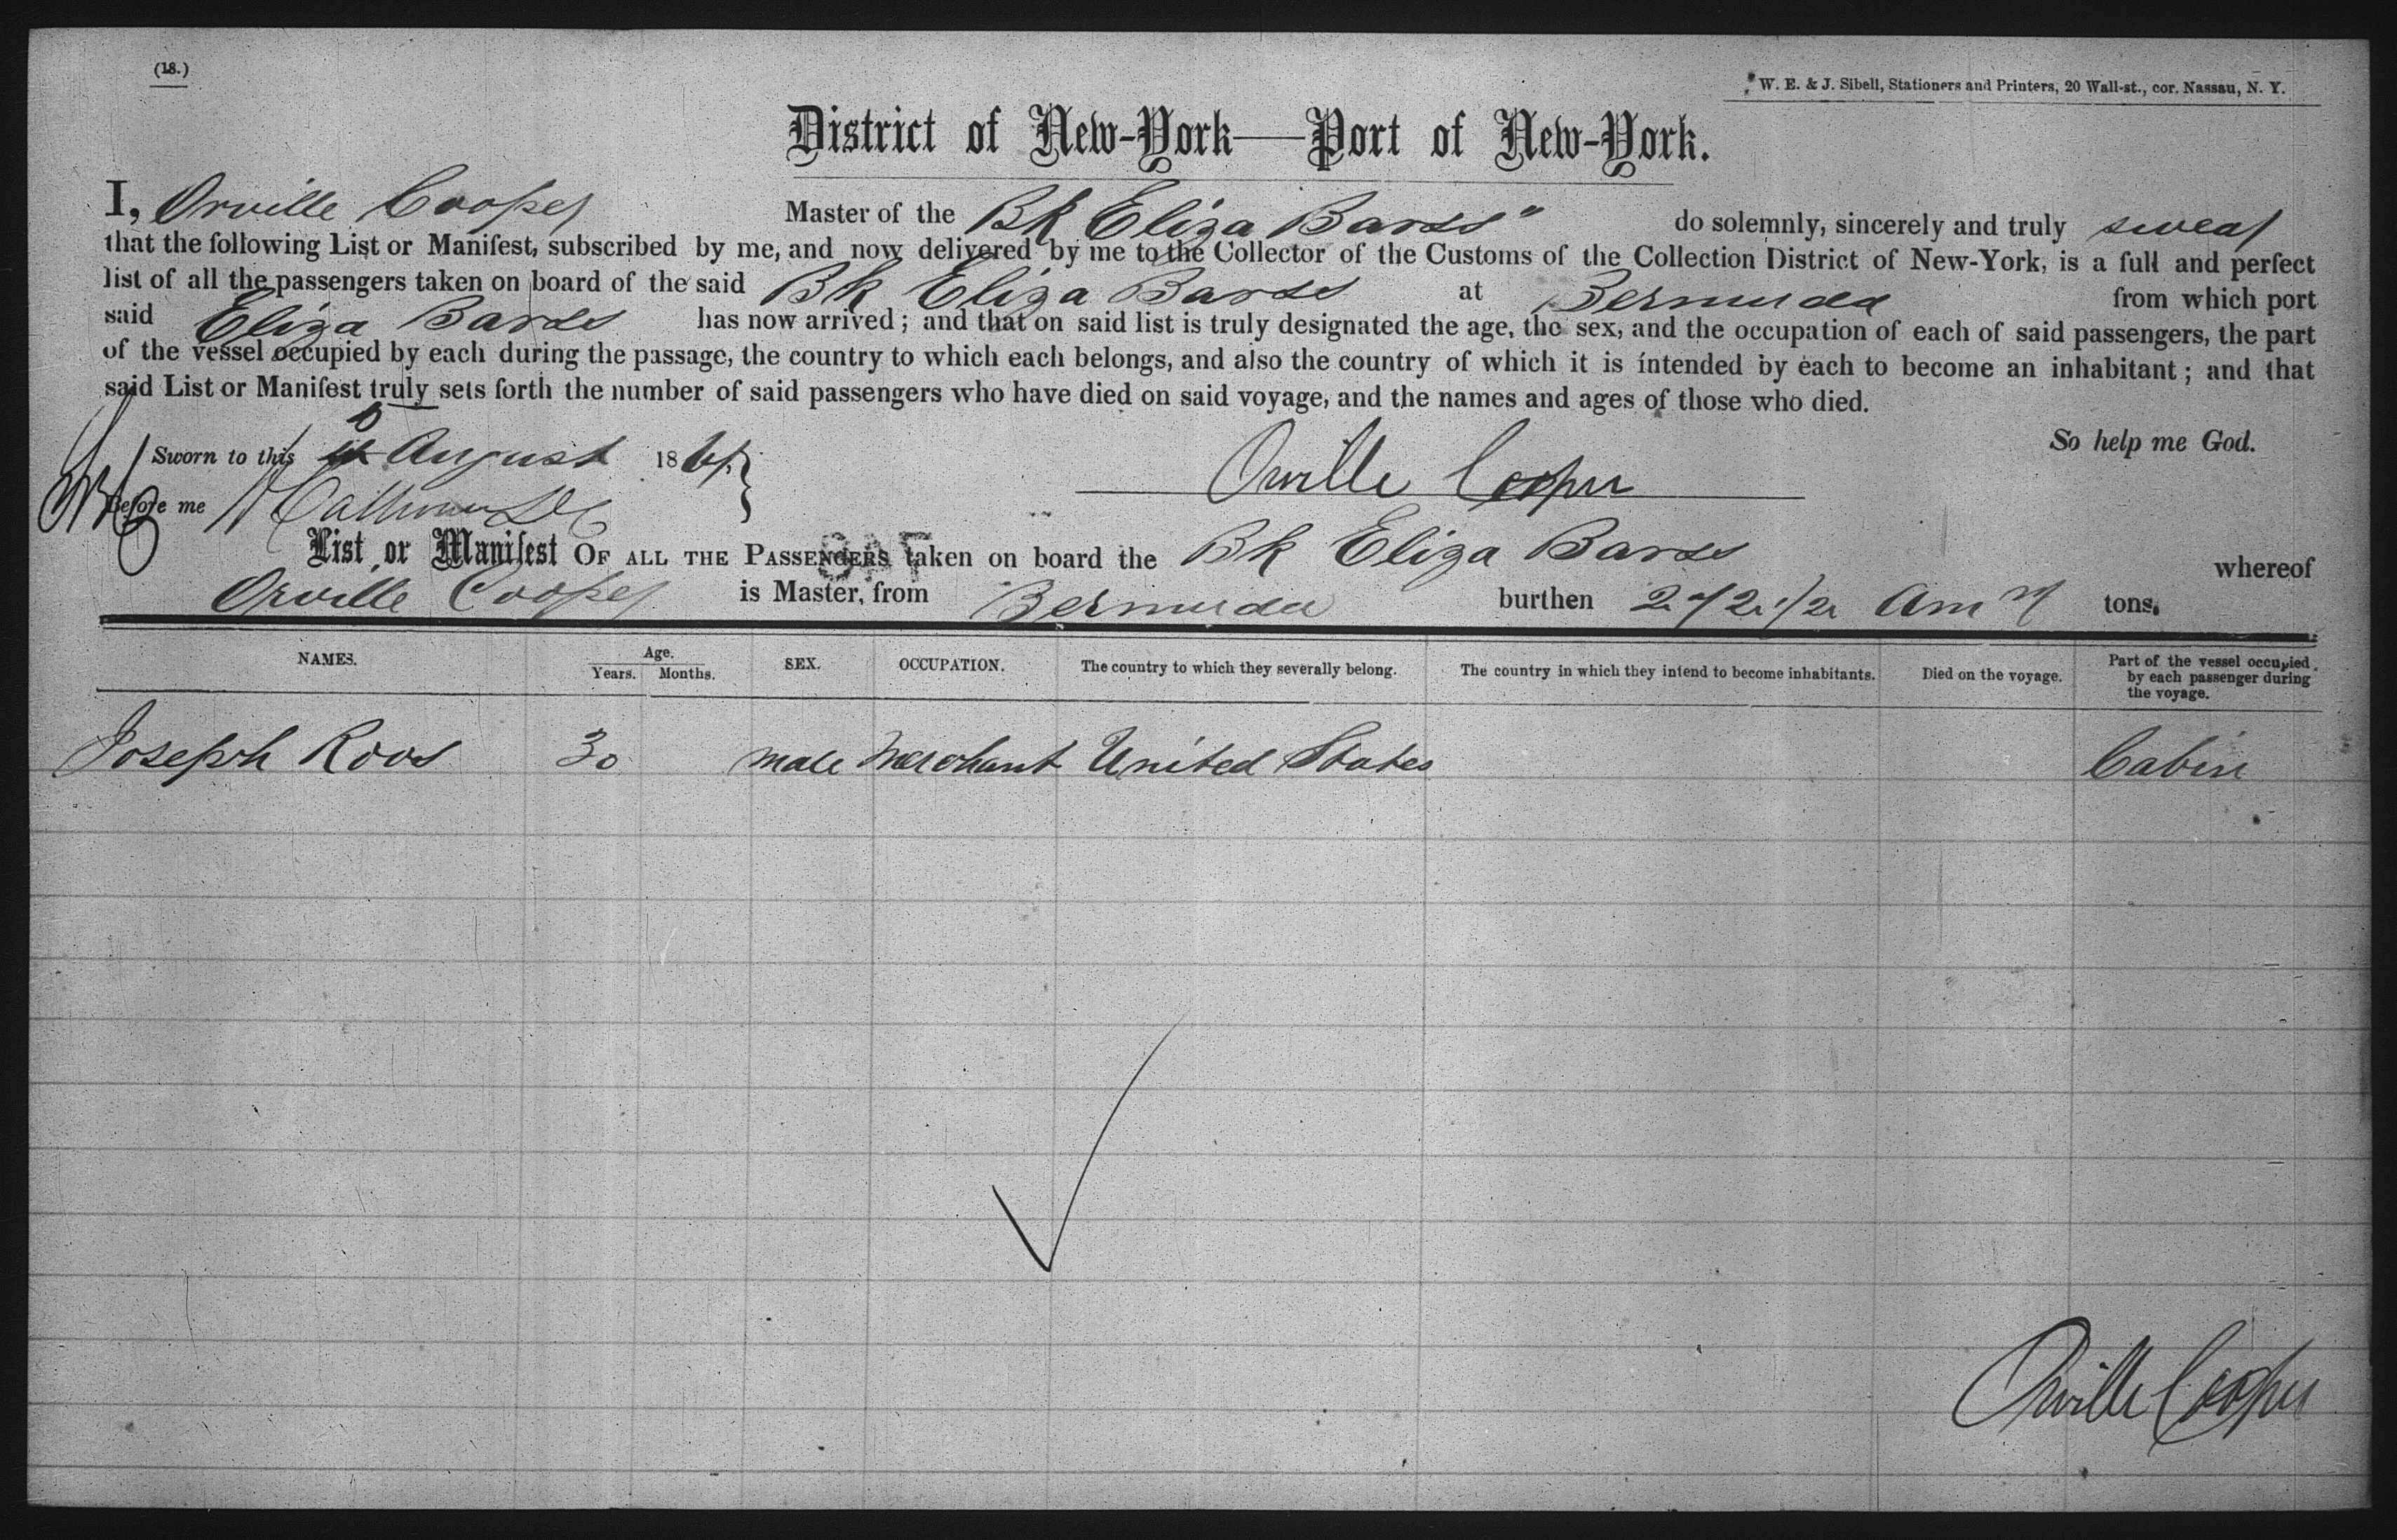 (18.)
W. E. & J. Sibell, Stationers and Printers, 20 Wall-st., cor. Nassau, N. Y.
District of New-York—Port of New-York.
I, Orville Cooper Master of the Bk Eliza Barss" do solemnly, sincerely and truly swear
that the following List or Manifest, subscribed by me, and now delivered by me to the Collector of the Customs of the Collection District of New-York, is a full and perfect
list of all the passengers taken on board of the said Bk Eliza Barss at Bermuda from which port
said Eliza Barss has now arrived; and that on said list is truly designated the age, the sex, and the occupation of each of said passengers, the part
of the vessel occupied by each during the passage, the country to which each belongs, and also the country of which it is intended by each to become an inhabitant; and that
said List or Manifest truly sets forth the number of said passengers who have died on said voyage, and the names and ages of those who died.
So help me God.
Sworn to this August 186
Orville Cooper
Before me
List or Manifest OF ALL THE PASSENGERS taken on board the Bk Eliza Barss whereof
Orville Cooper is Master, from Bermuda burthen tons.
NAMES. Age. Years. Months. SEX. OCCUPATION. The country to which they severally belong. The country in which they intend to become inhabitants. Died on the voyage. Part of the vessel occupied by each passenger during the voyage.
Joseph Roos 30 male Merchant United States Cabin
Orville Cooper